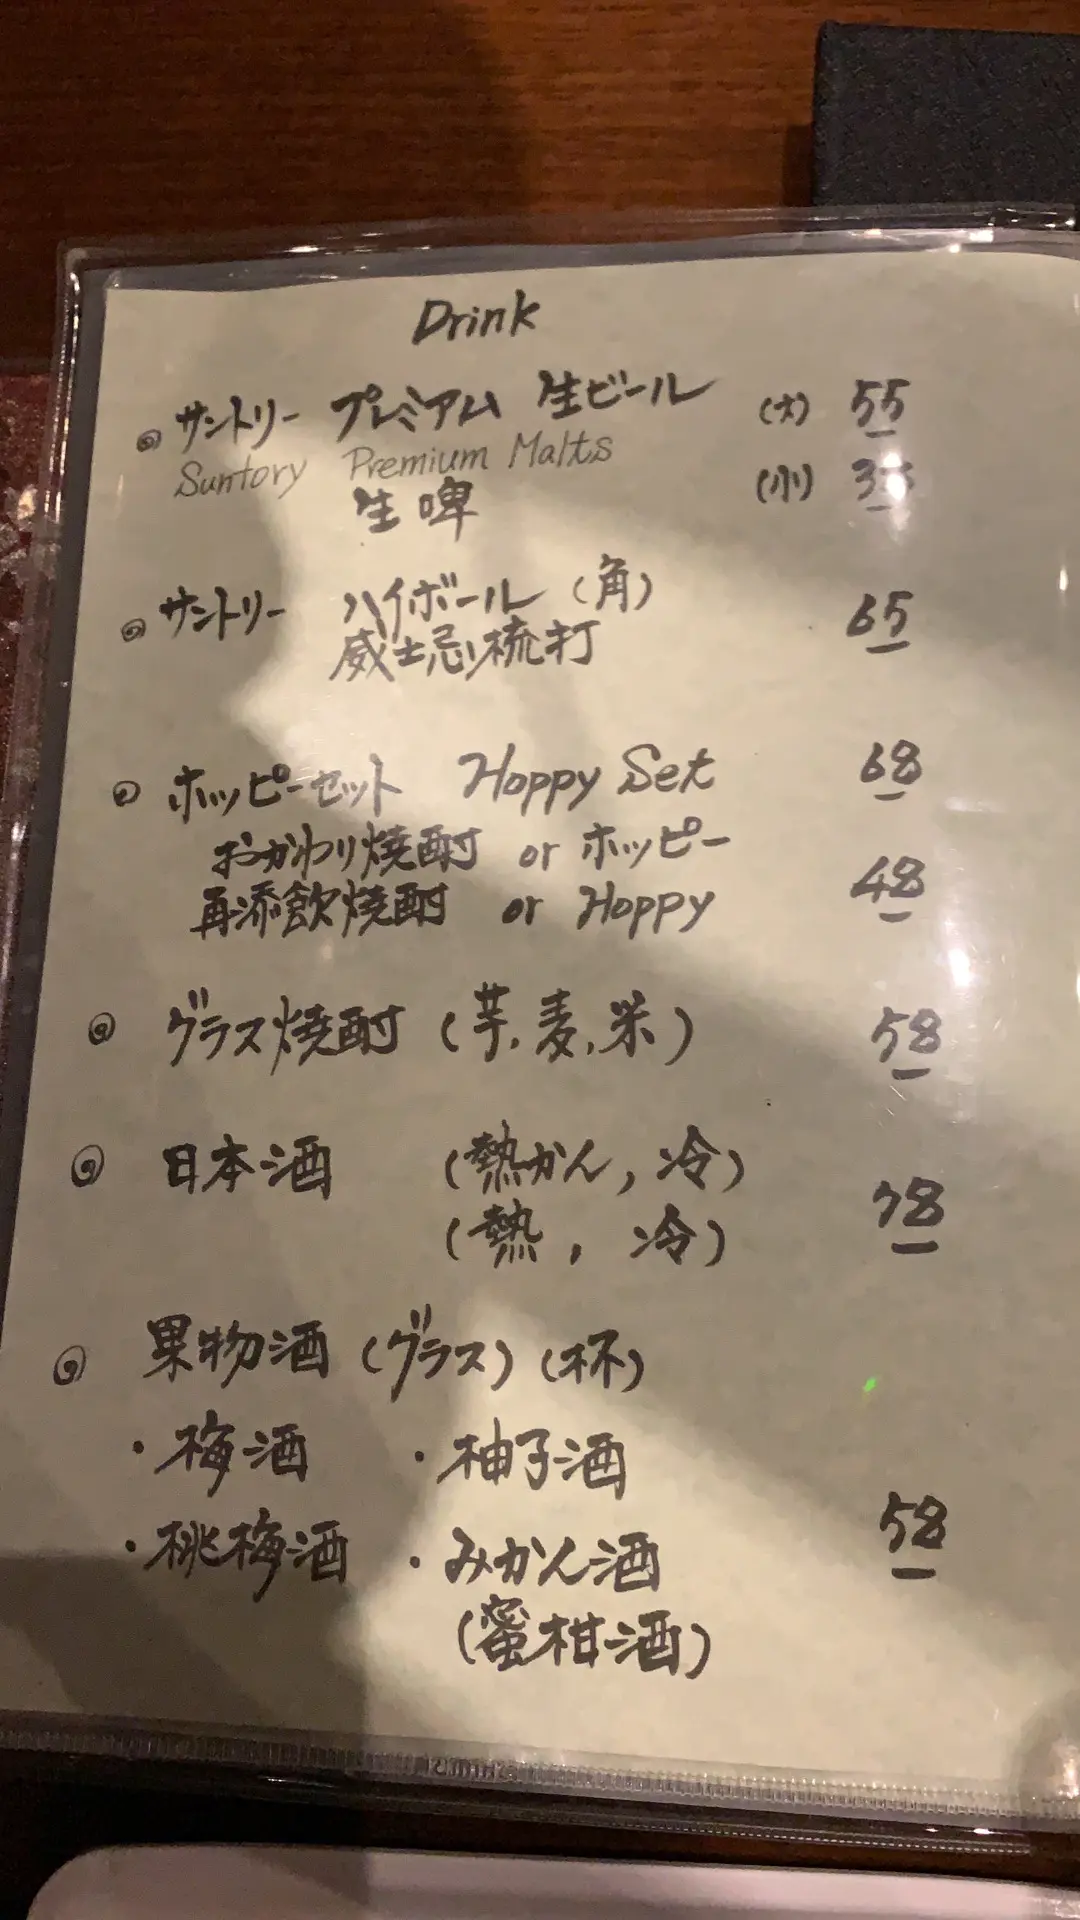 Drink
サントリー プレミアム 生ビール (大) 55
Suntory Premium Malts
生啤 (小)
サントリー ハイボール (角) 65
威士忌梳打
ホッピーセット Hoppy Set 68
おかわり焼酎 or ホッピー
再添飲焼酎 or Hoppy 48
グラス焼酎 (芋, 麦, 米) 58
日本酒 (熱かん, 冷) 78
(熱, 冷)
果物酒 (グラス) (杯)
・梅酒 ・柚子酒
・桃梅酒 ・みかん酒 58
(蜜柑酒)